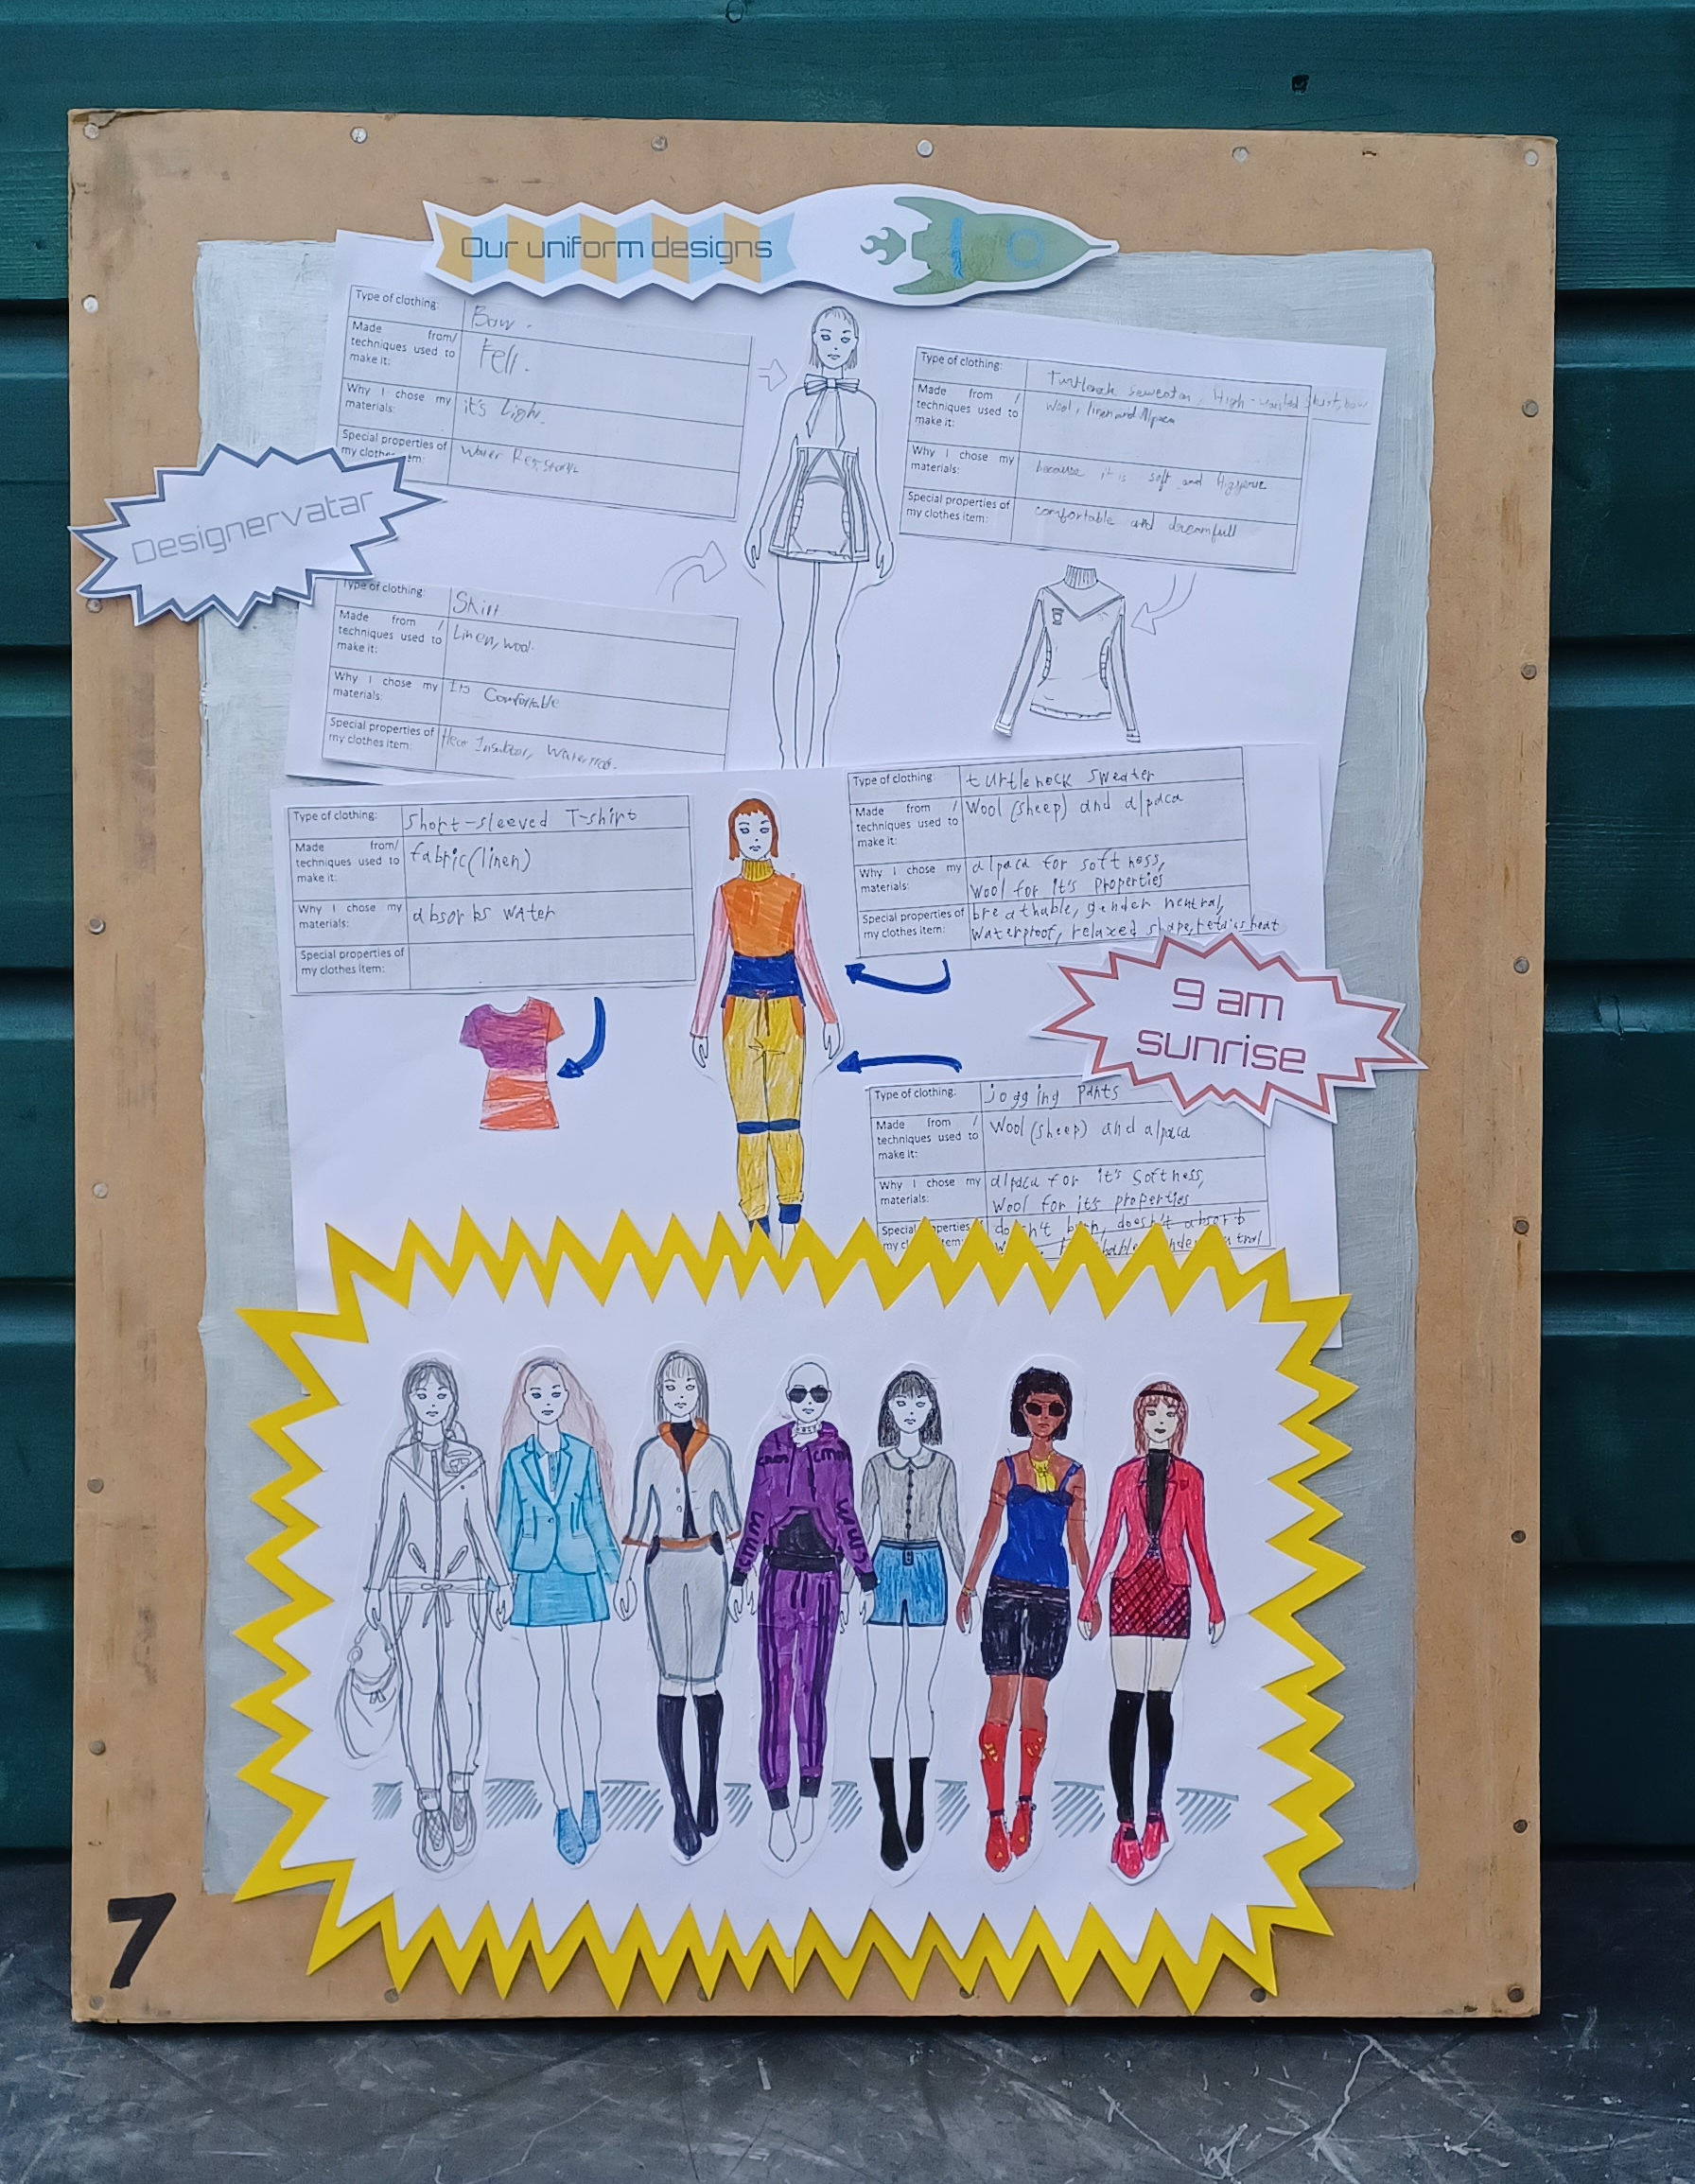 Our uniform designs
Type of clothing:
Bow.
Made from/
techniques used to
make it:
Felt.
Why I chose my
materials:
it's Light.
Special properties of
Water
Type of clothing:
Turtleneck High-waisted Skirt, bow
Made from /
techniques used to
make it:
Wool, linen and Alpaca
Why I chose my
materials:
because it is soft and
Special properties of
my clothes item:
comfortable and dreamfull
Designervatar
Type of clothing:
Made from /
techniques used to
make it:
Linen, wool.
Why I chose my
materials:
Its Comfortable
Special properties of
my clothes item:
Type of clothing:
Short-sleeved T-shirt
Made from/
techniques used to
make it:
fabric(linen)
Why I chose my
materials:
absorbs water
Special properties of
my clothes item:
Type of clothing:
turtleneck sweater
Made from /
techniques used to
make it:
Wool (sheep) and alpaca
Why I chose my
materials:
alpaca for softness,
Wool for it's properties
Special properties of
my clothes item:
breathable, gender neutral,
waterproof, relaxed shape, retains heat
9 am
sunrise
Type of clothing:
jogging pants
Made from /
techniques used to
make it:
Wool (sheep) and alpaca
Why I chose my
materials:
alpaca for it's softness,
Wool for its properties
Special
doesn't absorb
cmm
7